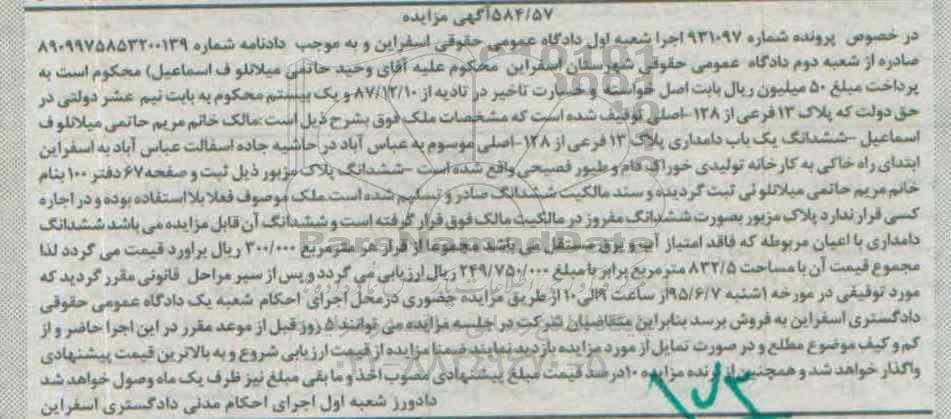 ۵۸۴/۵۷آگهی مزایده
در خصوص پرونده شماره ۹۳۱۰۹۷ اجرا شعبه اول دادگاه عمومی حقوقی اسفراین و به موجب دادنامه شماره ۸۹۰۹۹۷۵۸۵۳۲۰۰۱۳۹
صادره از شعبه دوم دادگاه عمومی حقوقی شهرستان اسفراین محکوم علیه آقای وحید حاتمی میلانلو ف اسماعیل) محکوم است به
پرداخت مبلغ ۵۰ میلیون ریال بابت اصل خواسته و خسارت تاخیر در تادیه از ۸۷/۱۲/۱۰ و یک بیستم محکوم به بابت نیم عشر دولتی در
حق دولت که پلاک ۱۳ فرعی از ۱۲۸ -اصلی توقیف شده است که مشخصات ملک فوق بشرح ذیل است :مالک خانم مریم حاتمی میلانلو ف
اسماعیل -ششدانگ یک باب دامداری پلاک ۱۳ فرعی از ۱۲۸-اصلی موسوم به عباس آباد در حاشیه جاده اسفالت عباس آباد به اسفراین
ابتدای راه خاکی به کارخانه تولیدی خوراک دام و طیور فصیحی واقع شده است -ششدانگ پلاک مزبور ذیل ثبت و صفحه ۶۷ دفتر ۱۰۰ بنام
خانم مریم حاتمی میلانلوئی ثبت گردیده و سند مالکیت ششدانگ صادر و تسلیم شده است.ملک موصوف فعلا بلا استفاده بوده و در اجاره
کسی قرار ندارد پلاک مزبور بصورت ششدانگ مفروز در مالکیت مالک فوق قرار گرفته است و ششدانگ آن قابل مزایده می باشد ششدانگ
دامداری با اعیان مربوطه که فاقد امتیاز آب و برق مستقل می باشد مجموعا از قرار هر متر مربع ۳۰۰/۰۰۰ ریال براورد قیمت می گردد لذا
مجموع قیمت آن با مساحت ۸۳۲/۵ متر مربع برابر با مبلغ ۲۴۹/۷۵۰/۰۰۰ ریال ارزیابی می گردد و پس از سیر مراحل قانونی مقرر گردید که
مورد توقیفی در مورخه ۱شنبه ۹۵/۶/۷از ساعت ۹الی۱۰ از طریق مزایده حضوری در محل اجرای احکام شعبه یک دادگاه عمومی حقوقی
دادگستری اسفراین به فروش برسد بنابراین متقاضیان شرکت در جلسه مزایده می توانند ۵ روز قبل از موعد مقرر در این اجرا حاضر و از
کم و کیف موضوع مطلع و در صورت تمایل از مورد مزایده بازدید نمایند ضمنا مزایده از قیمت ارزیابی شروع و به بالاترین قیمت پیشنهادی
واگذار خواهد شد و همچنین از برنده مزایده ۱۰درصد قیمت مبلغ پیشنهادی مصوب اخذ و مابقی مبلغ نیز ظرف یک ماه وصول خواهد شد
دادورز شعبه اول اجرای احکام مدنی دادگستری اسفراین